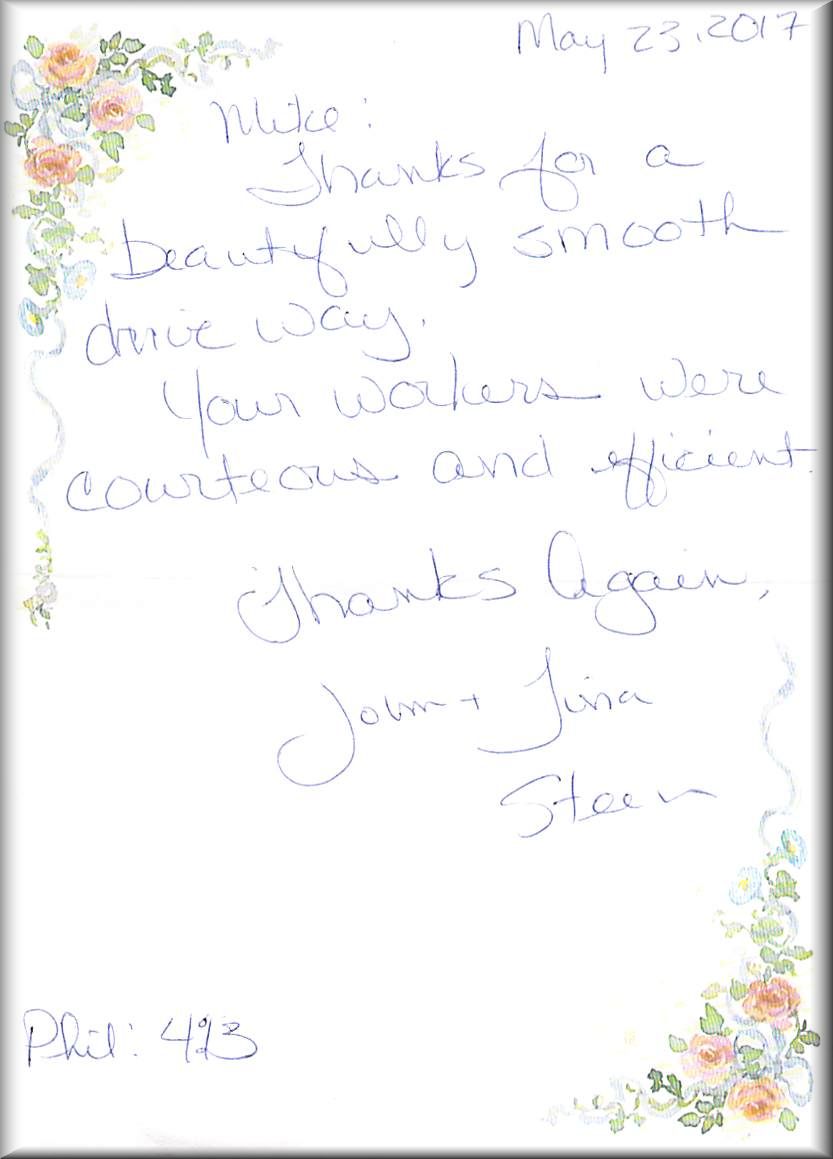 May 23, 2017
Mike:
Thanks for a
beautifully smooth
drive way.
Your workers were
courteous and efficient.
Thanks Again,
John + Tina
Steen
Phil: 4:13